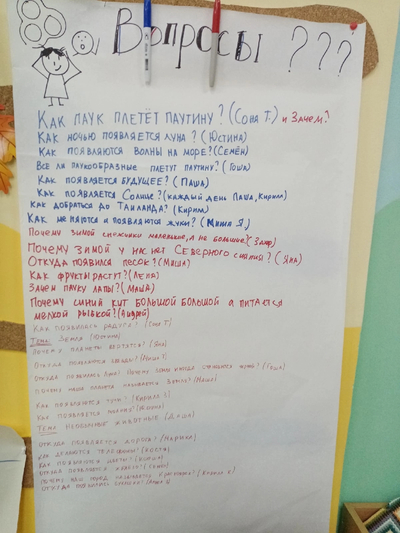 Вопросы ???
Как паук плетёт паутину? (Соня Т.) и Зачем?
Как ночью появляется луна? (Юстина)
Как появляются волны на море? (Семён)
Все ли паукообразные плетут паутину? (Гоша)
Как появляется будущее? (Паша)
Как появляется Солнце? (каждый день Паша, Кирилл)
Как добраться до Таиланда? (Кирилл)
Как меняются и появляются жуки? (Миша Я.)
Почему зимой снежинки маленькие, а не большие?
Почему зимой у нас нет Северного сияния? (Яна)
Откуда появился песок? (Миша)
Как фрукты растут? (Лена)
Зачем пауку лапы? (Маша)
Почему синий кит большой большой а питается
мелкой рыбкой? (Андрей)
Как появилась радуга? (Соня Т.)
Тема: Земля (Юстина)
Почему планеты вертятся? (Яна)
Откуда появляются звёзды?
Откуда появилась луна? Почему
Почему наша планета называется Земля?
Как появляются тучи? (Кирилл
Как появляется
Тема Необычные животные. (Даша)
Откуда появляется дорога?
Как делаются телефоны? (Костя)
Как появляются цветы?
Откуда появляется
Почему наш город называется
Откуда появились